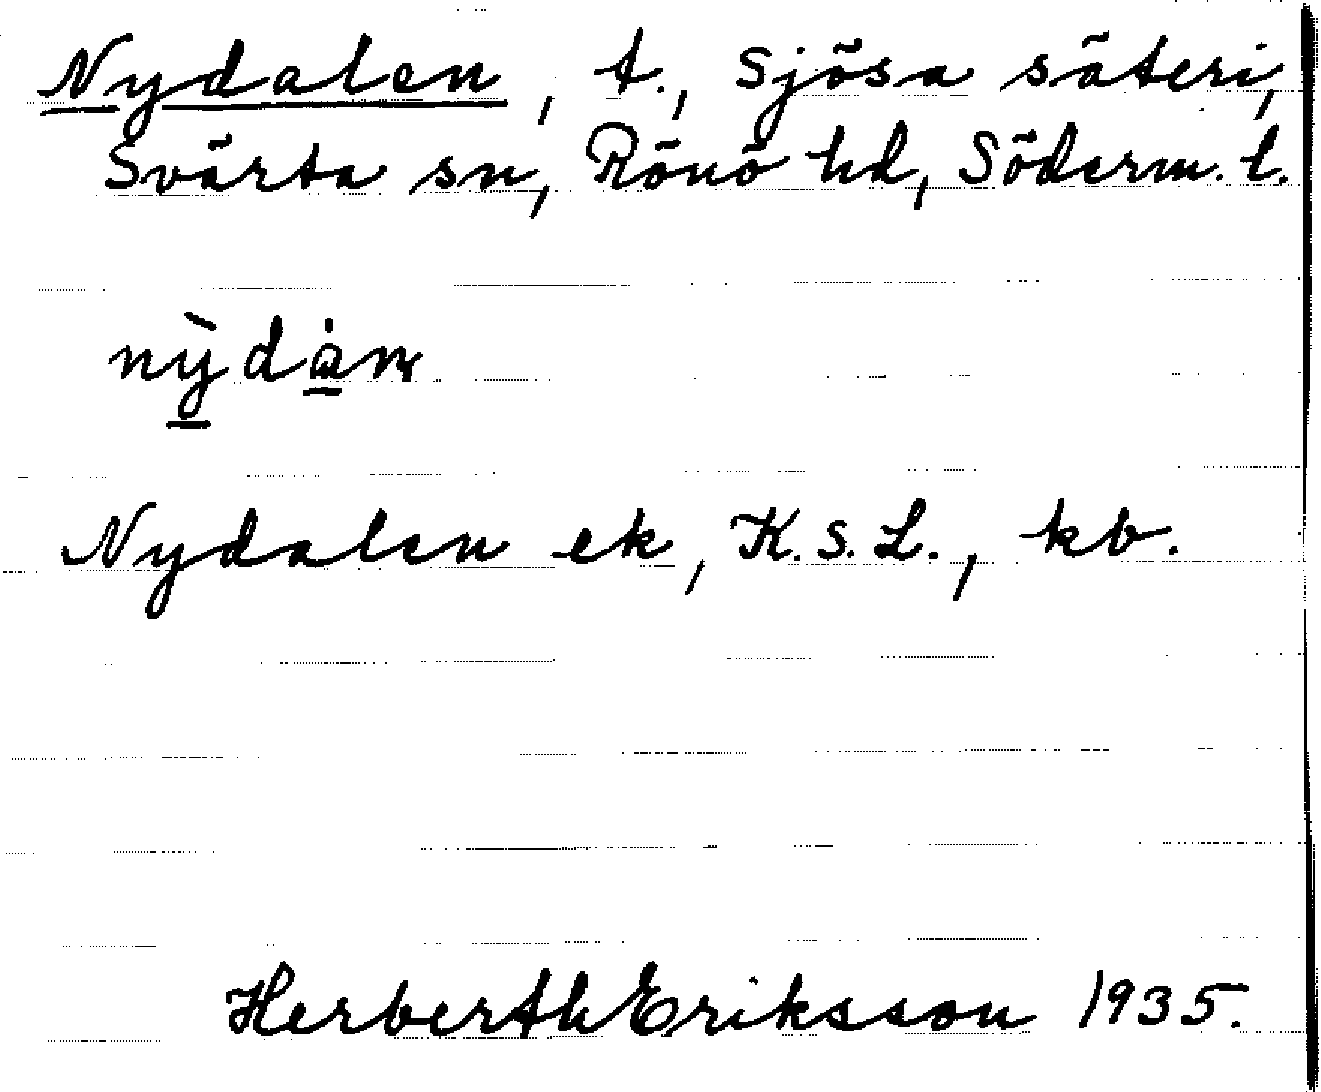 Nydalen, t., Sjösa säteri,
Svärta sn, Rönö hd, Söderm. l.
Nydalen ek, K.S.L., kb.
Herberth Eriksson 1935.